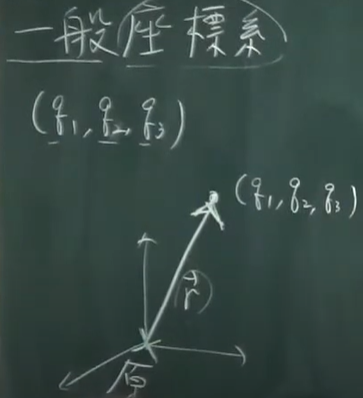 一般座標系
(q1, q2, q3)
(q1, q2, q3)
r⃗
原